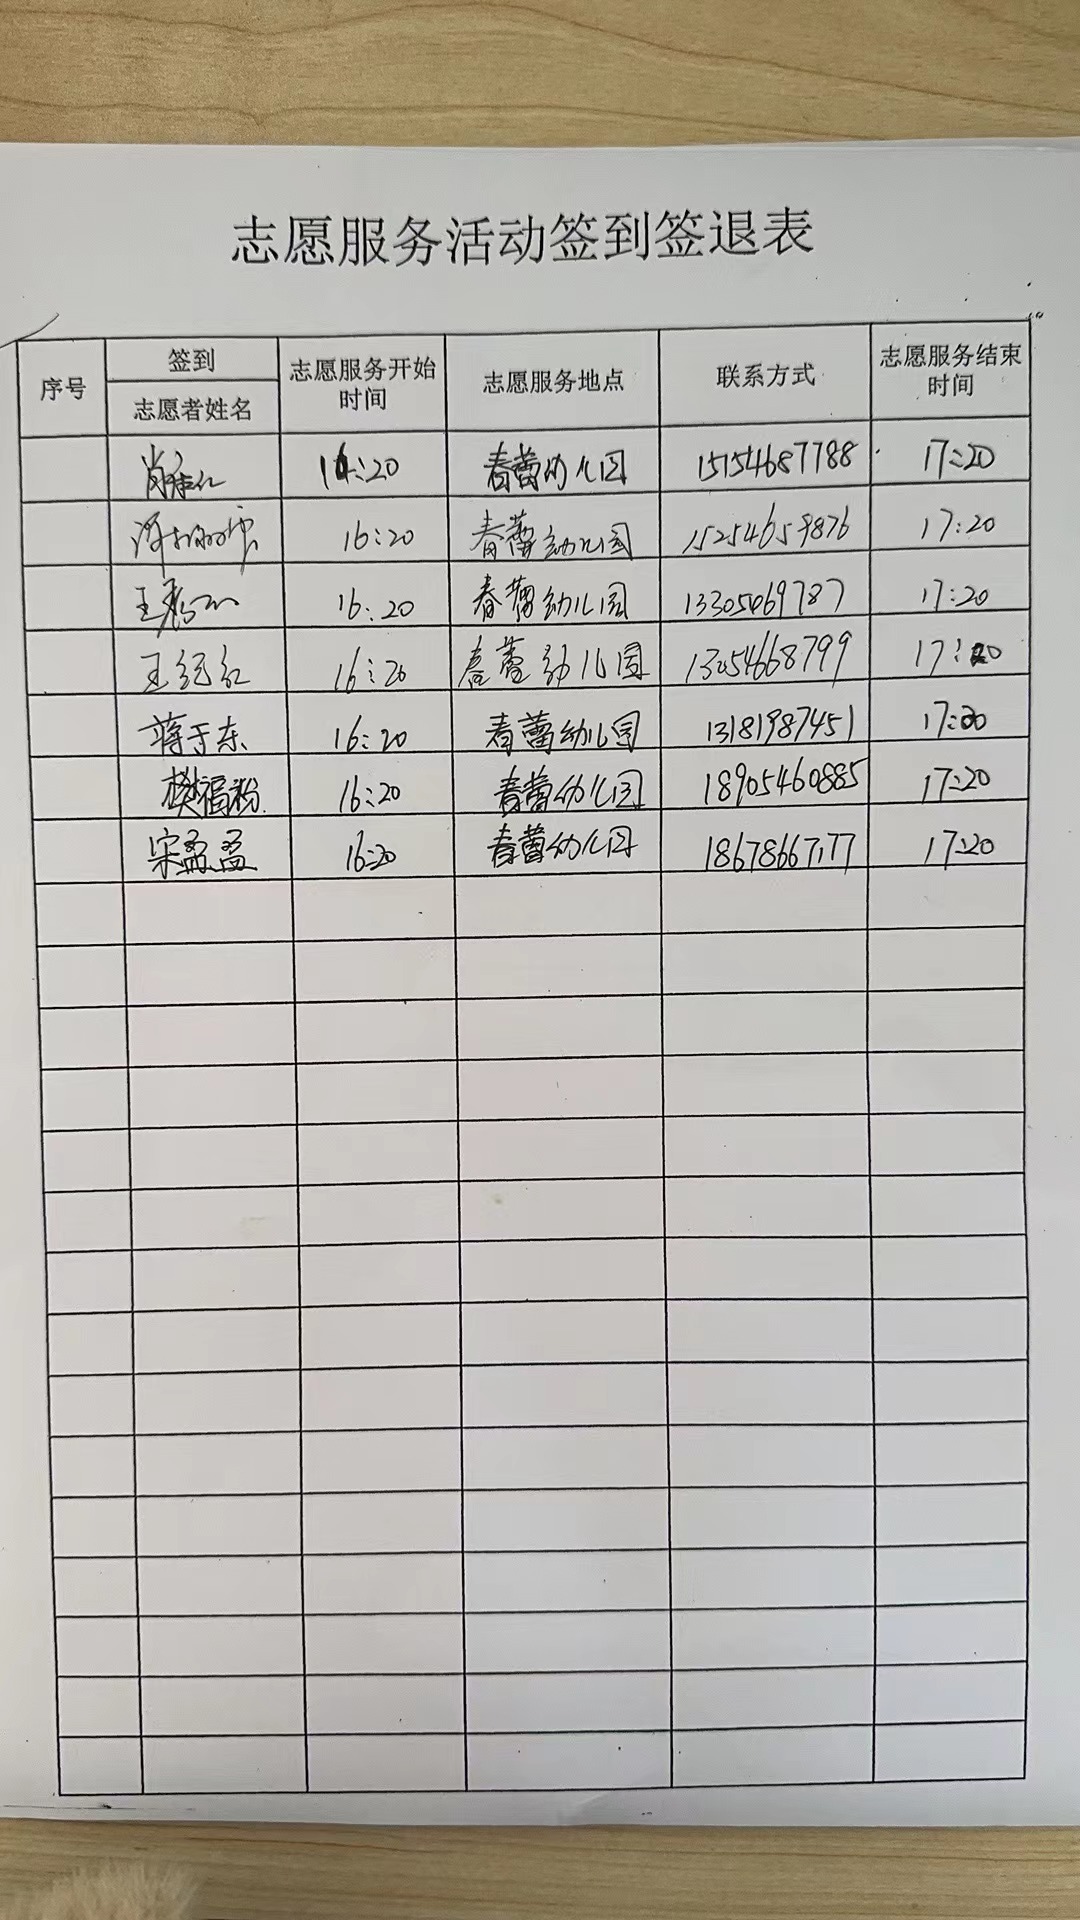 志愿服务活动签到签退表
序号 签到 志愿者姓名 志愿服务开始时间 志愿服务地点 联系方式 志愿服务结束时间
16:20 春蕾幼儿园 15154687788 17:20
16:20 春蕾幼儿园 15254659876 17:20
16:20 春蕾幼儿园 13305069787 17:20
王纪红 16:20 春蕾幼儿园 13054668799 17:20
蒋于东 16:20 春蕾幼儿园 13181987451 17:20
樊福粉 16:20 春蕾幼儿园 18905460885 17:20
宋盈盈 16:20 春蕾幼儿园 18678667177 17:20